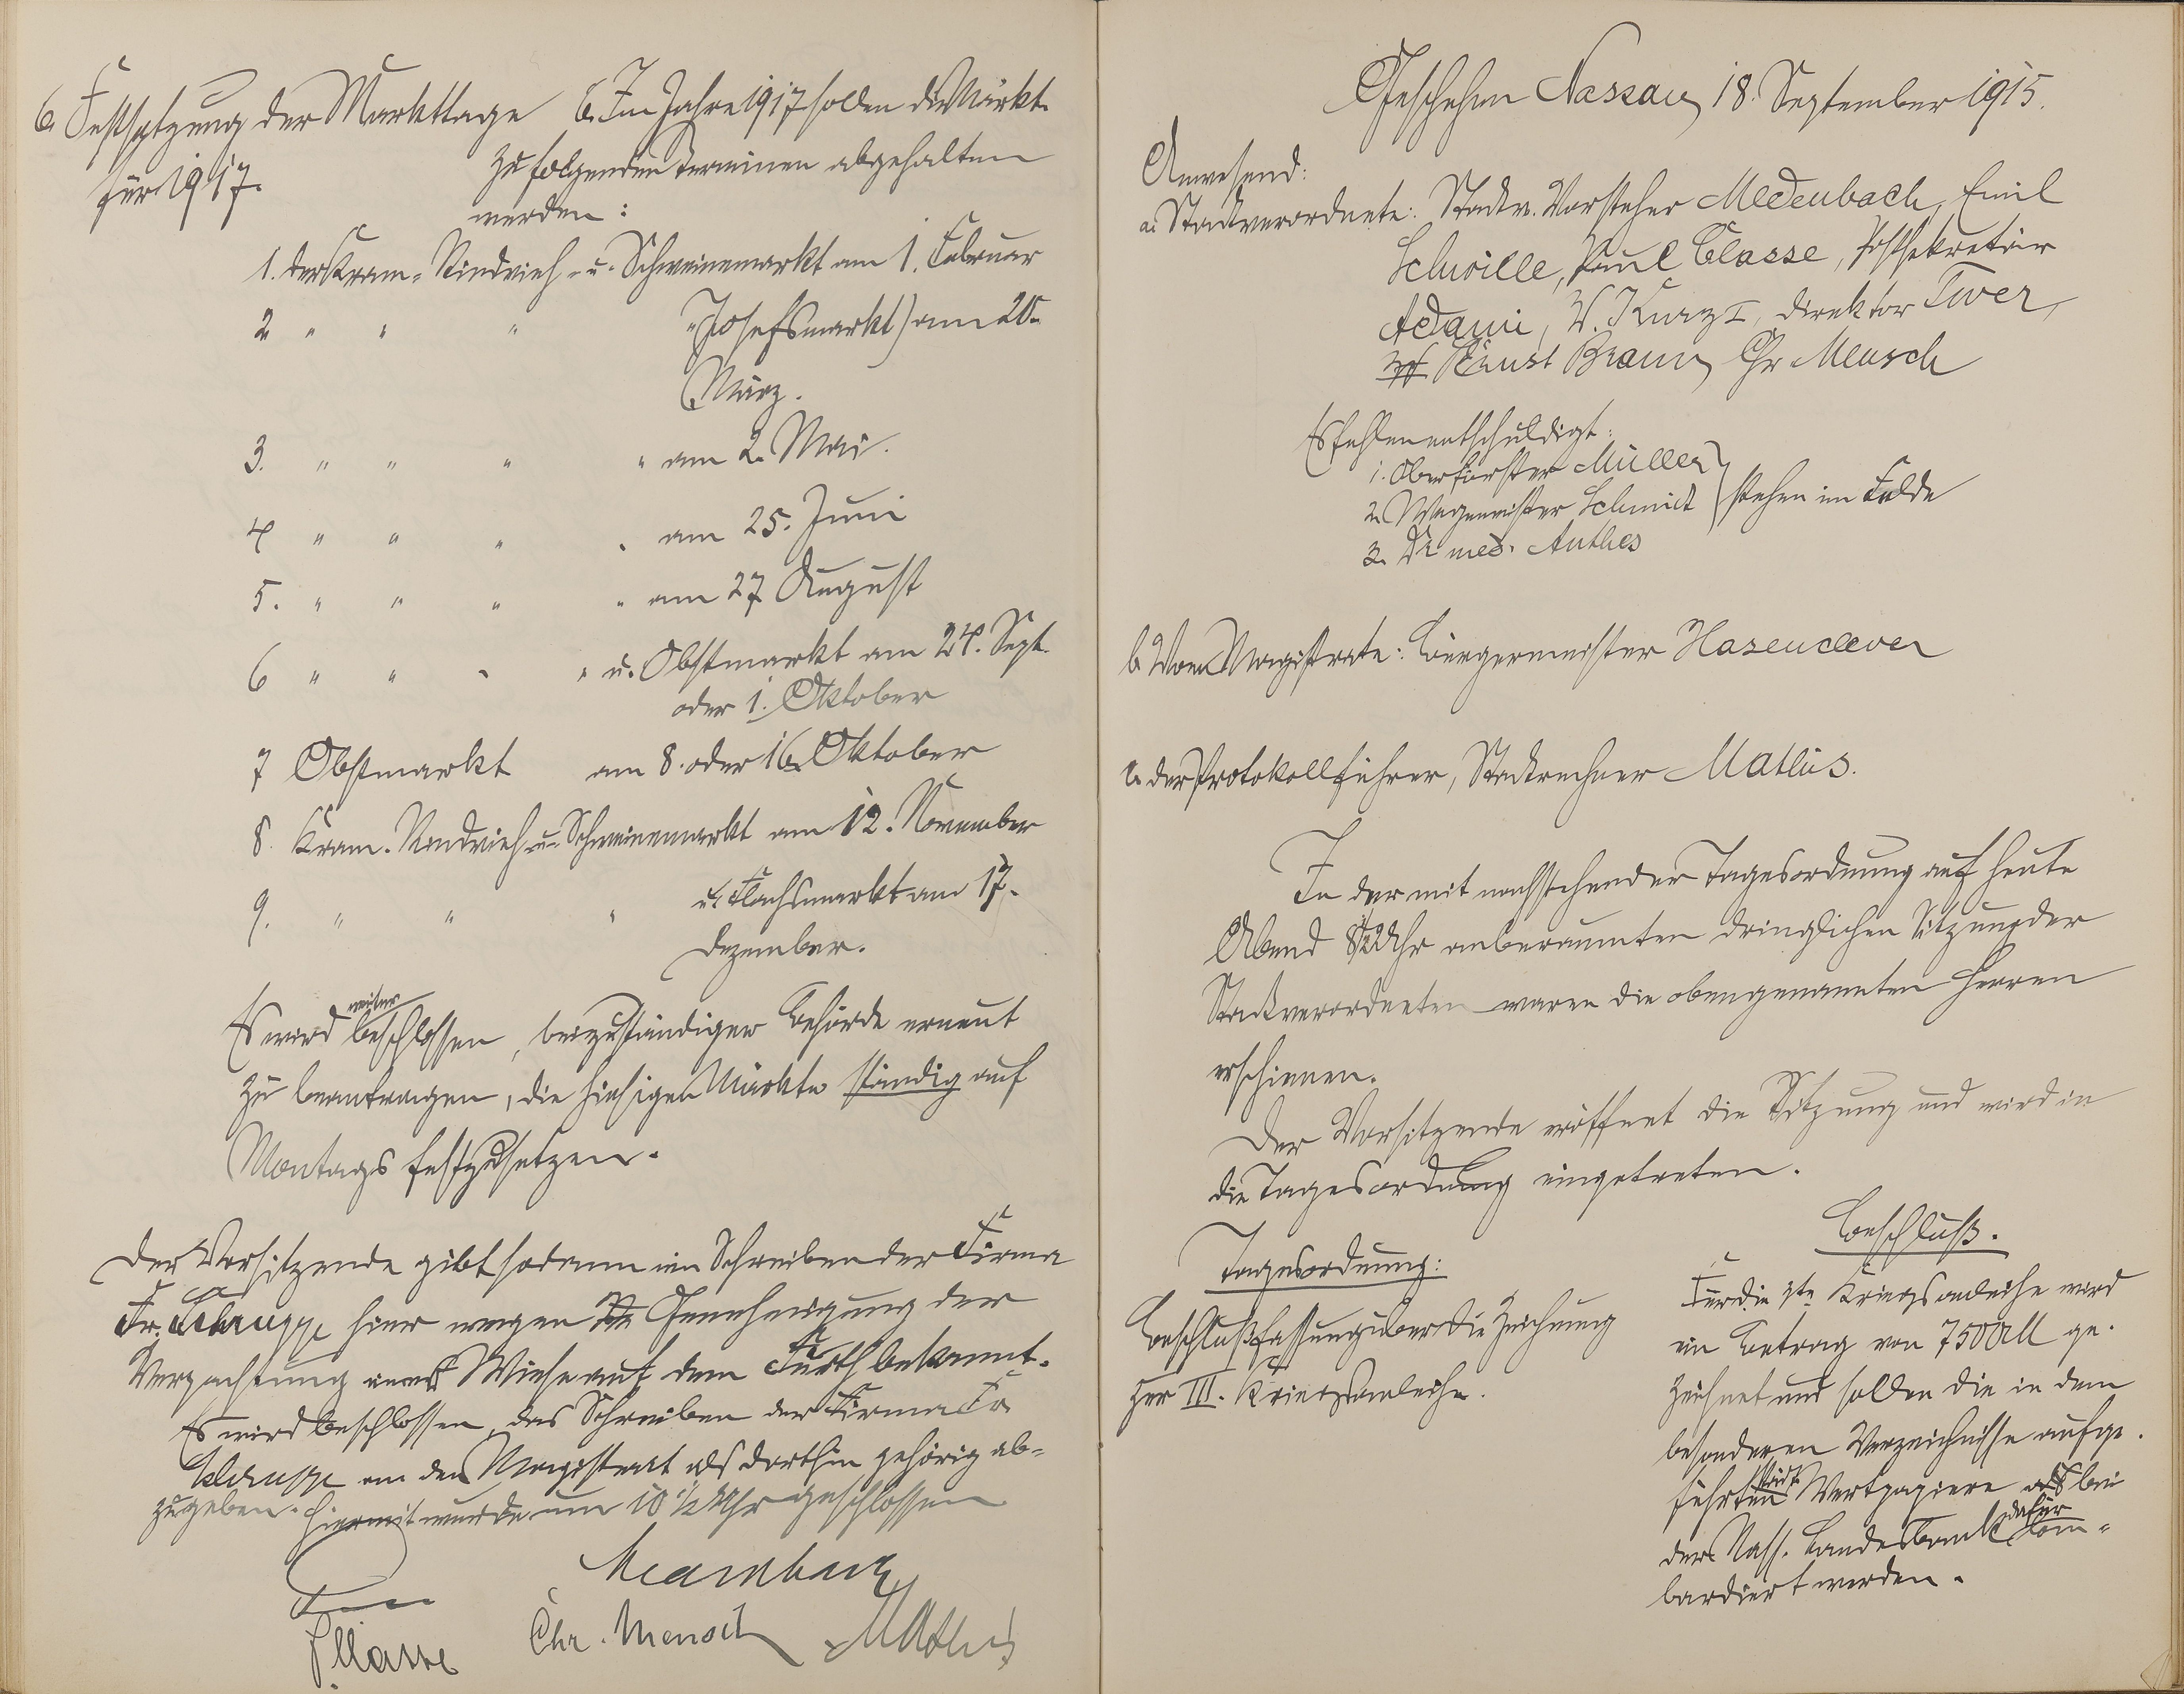 6. Festsetzung der Markttage
für 1917.
6. Im Jahre 1917 sollen die Märkte
zu folgenden Terminen abgehalten
werden:
1. der Kram-, Rindvieh- u. Schweinemarkt am 1. Februar
2 " " " " (Josefsmarkt) am 20.
März.
3. " " " " am 2. Mai.
4 " " " " am 25. Juni
5. " " " " am 27 August
6 " " " " u. Obstmarkt am 24. Sept.
oder 1. Oktober
7 Obstmarkt am 8. oder 16. Oktober
8. Kram- Rindvieh- u. Schweinemarkt am 12. November
9. " " " u. Flachsmarkt am 17.
Dezember.
Es wird weiter beschlossen, bei zuständiger Behörde erneut
zu beantragen, die hiesigen Märkte ständig auf
Montags festzusetzen.
Der Vorsitzende gibt sodann ein Schreiben der Firma
Fr. hier wegen Genehmigung der
Verpachtung einer Wiese auf dem Fürth bekannt.
Es wird beschlossen, das Schreiben der Firma Fr.
an den Magistrat als dorthin gehörig ab-
zugeben. Hiermit wurde um 10 1/2 Uhr geschlossen
Medenbach
P Classe Chr. Mensch Mathis
Geschehen Nassau, 18. September 1915.
Anwesend:
a. Stadtverordnete: Stadtv. Vorsteher Medenbach, Emil
Schwille, Paul Classe, Postsekretär
Adami, W. Kurz I, Direktor Twer,
Ernst Braun, Chr Mensch
Es fehlen entschuldigt:
1. Oberförster Müller
2. Wagenmeister Schmidt
3. Dr med. Anthes
stehen im Felde
b. Vom Magistrate: Bürgermeister Hasenclever
c. der Protokollführer, Stadtrechner Mathis.
In der mit nachstehender Tagesordnung auf heute
Abend 8 1/2 Uhr anberaumten dringlichen Sitzung der
Stadtverordneten waren die obengenannten Herren
erschienen.
Der Vorsitzende eröffnet die Sitzung und wird in
die Tagesordnung eingetreten.
Tagesordnung:
Beschlußfassung über die Zeichnung
zur III. Kriegsanleihe.
Beschluß.
Für die 3te Kriegsanleihe wird
ein Betrag von 7500 M ge-
zeichnet und sollen die in dem
besonderen Verzeichnisse aufge-
führten städt. Wertpapiere bei
der Nass. Landesbank dafür lom-
bardiert werden.